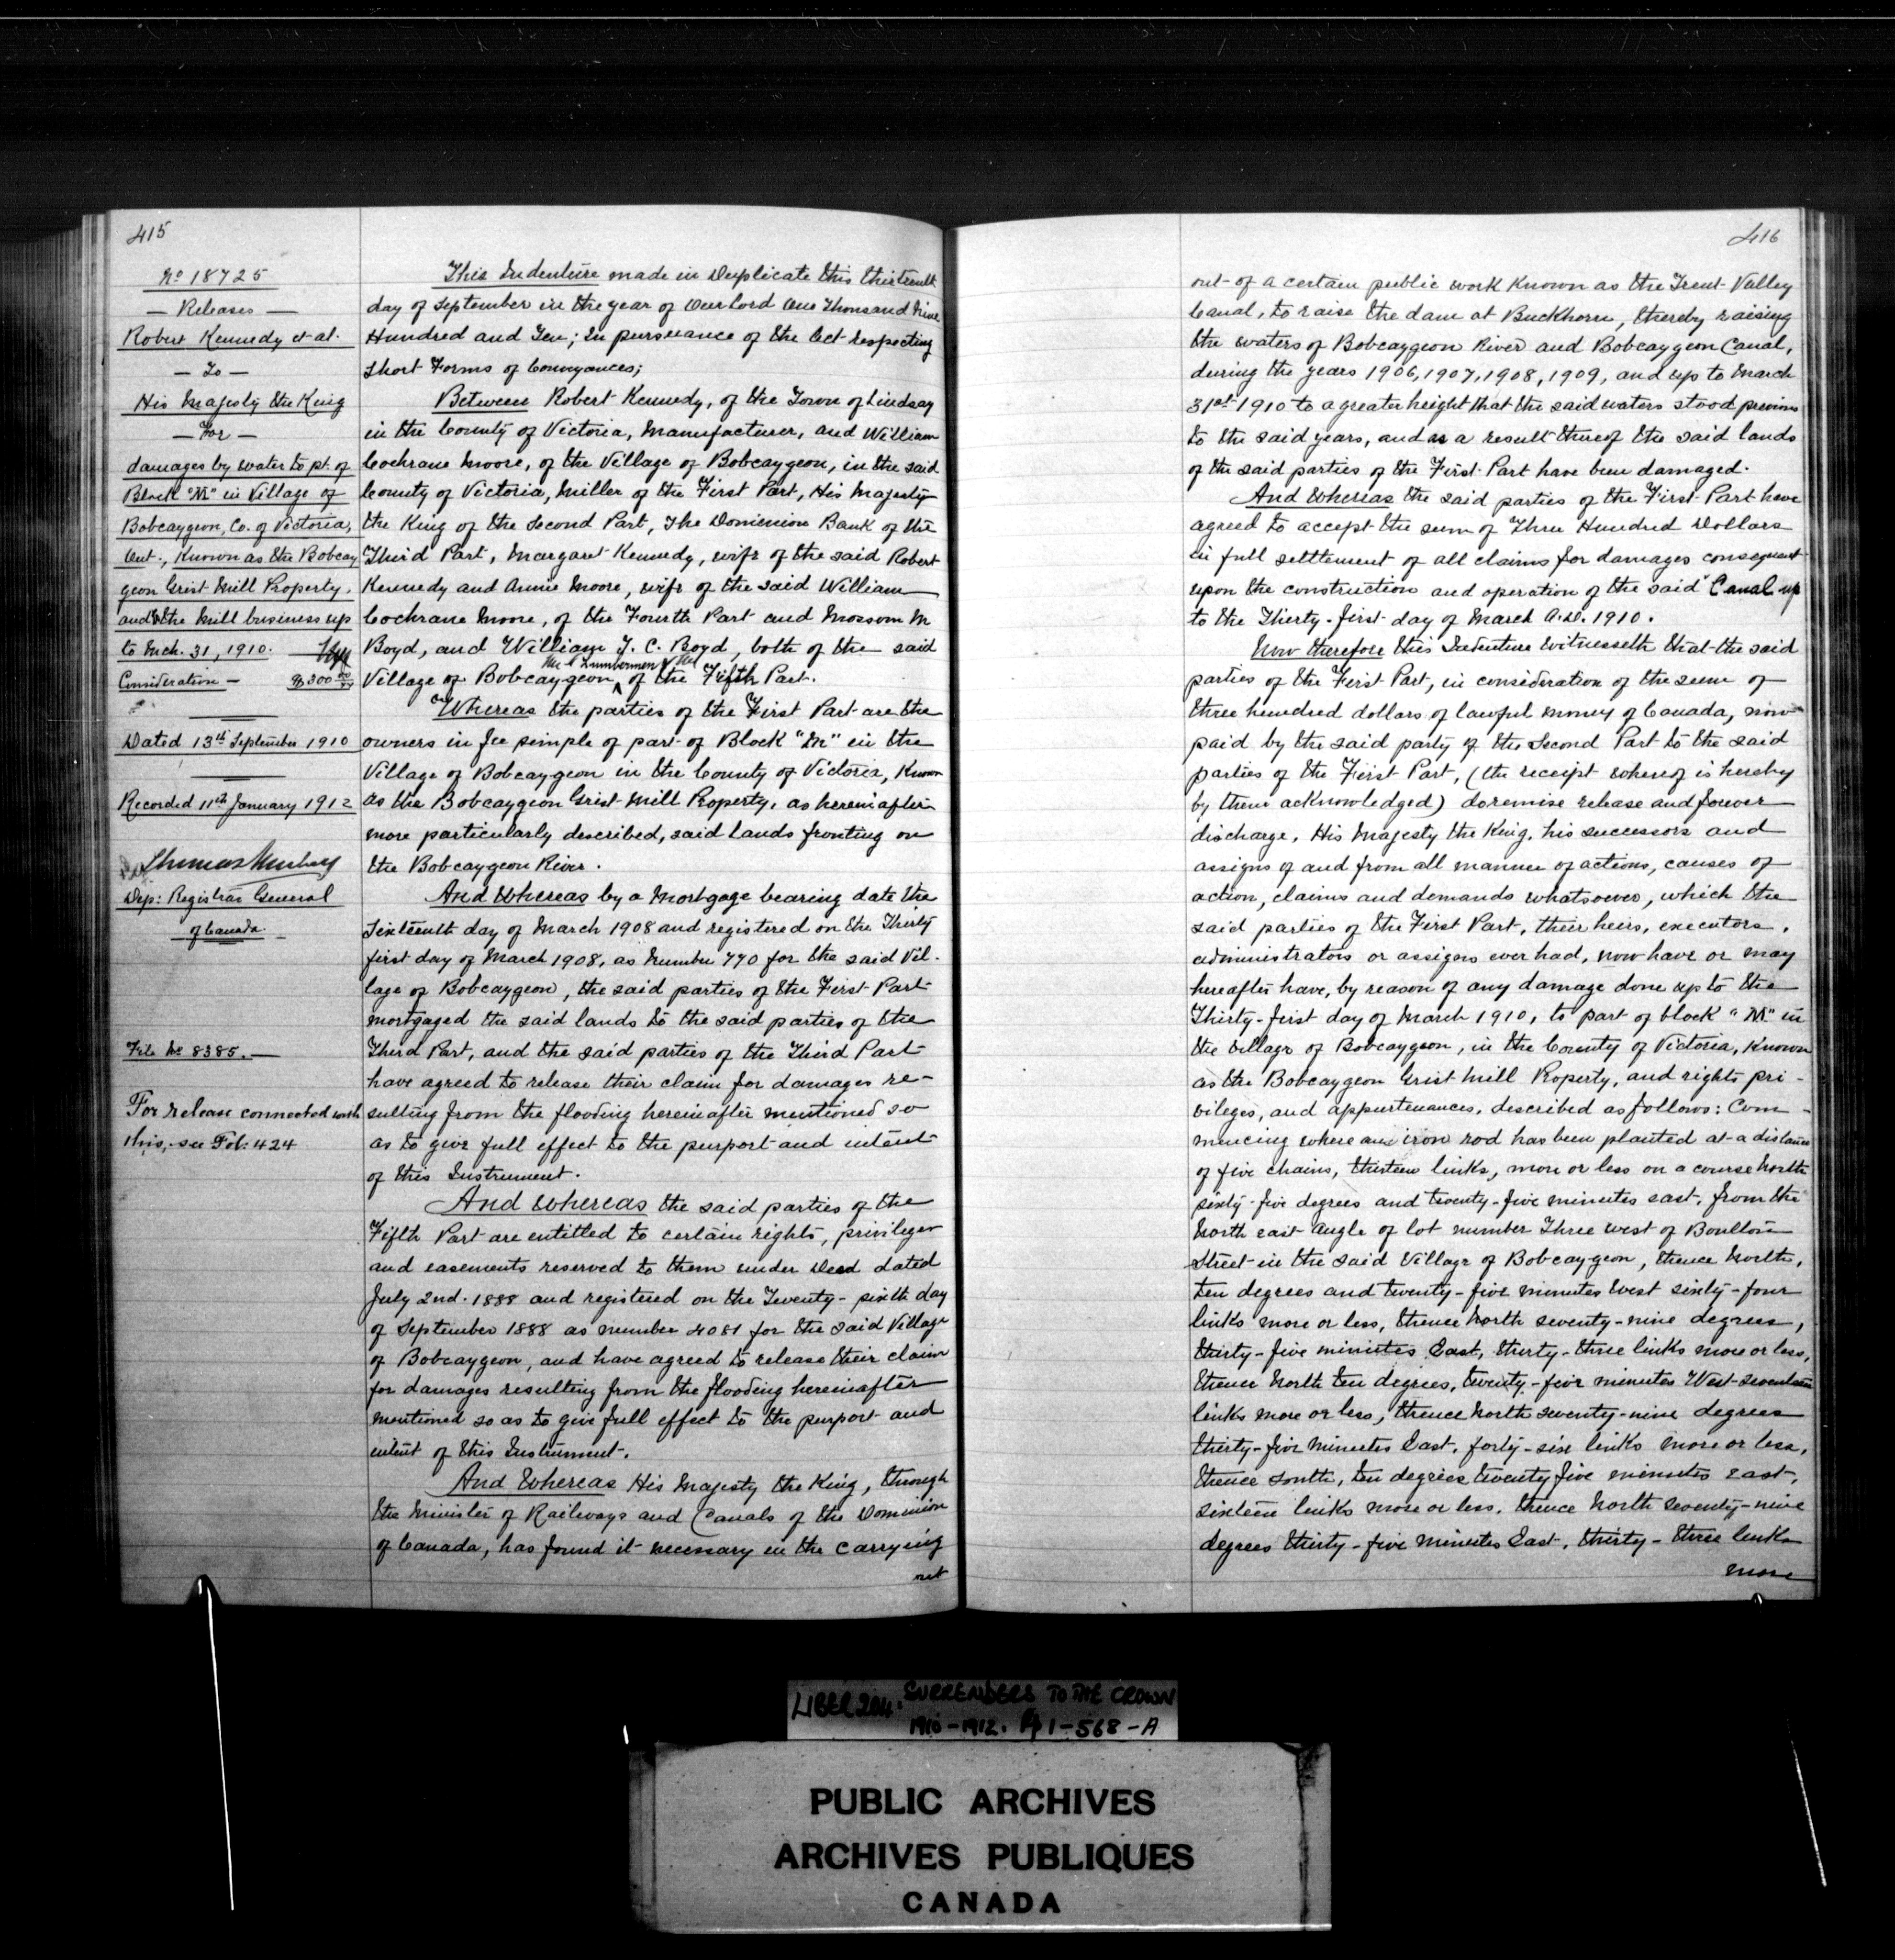 415
No 18725
— Releases —
Robert Kennedy et al.
— To —
His Majesty the King
— For —
damages by water to pt. of
Block "M" in Village of
Bobcaygeon, Co. of Victoria,
Ont., Known as the Bobcay
geon Grist Mill Property.
and the mill business up
to Mch. 31, 1910.
Consideration — $300 00/xx
Dated 13th September 1910
Recorded 11th January 1912
Dep: Registrar General
of Canada.
File No 8385.
For release connected with
this, see Fol. 424
This Indenture made in Duplicate this thirteenth
day of September in the year of Our Lord One Thousand Nine
Hundred and Ten; In pursuance of the Act respecting
Short Forms of Conveyances;
Between Robert Kennedy, of the Town of Lindsay
in the County of Victoria, Manufacturer, and William
Cochrane Moore, of the Village of Bobcaygeon, in the said
County of Victoria, Miller of the First Part, His Majesty
the King of the Second Part, The Dominion Bank of the
Third Part, Margaret Kennedy, wife of the said Robert
Kennedy and Annie Moore, wife of the said William
Cochrane Moore, of the Fourth Part and Mossom M
Boyd, and William T. C. Boyd, both of the said
Lumbermen
Village of Bobcaygeon ^ of the Fifth Part.
Whereas the parties of the First Part are the
owners in fee simple of part of Block "M" in the
Village of Bobcaygeon in the County of Victoria, Known
as the Bobcaygeon Grist Mill Property, as hereinafter
more particularly described, said lands fronting on
the Bobcaygeon River.
And Whereas by a Mortgage bearing date the
Sixteenth day of March 1908 and registered on the Thirty
first day of March 1908, as Number 770 for the said Vil-
lage of Bobcaygeon, the said parties of the First Part
mortgaged the said lands to the said parties of the
Third Part, and the said parties of the Third Part
have agreed to release their claim for damages re-
sulting from the flooding hereinafter mentioned so
as to give full effect to the purport and intent
of this Instrument.
And Whereas the said parties of the
Fifth Part are entitled to certain rights, privileges
and easements reserved to them under Deed dated
July 2nd. 1888 and registered on the Twenty-sixth day
of September 1888 as number 4081 for the said Village
of Bobcaygeon, and have agreed to release their claim
for damages resulting from the flooding hereinafter
mentioned so as to give full effect to the purport and
intent of this Instrument.
And Whereas His Majesty the King, through
the Minister of Railways and Canals of the Dominion
of Canada, has found it necessary in the carrying
out
416
out of a certain public work known as the Trent Valley
Canal, to raise the dam at Buckhorn, thereby raising
the waters of Bobcaygeon River and Bobcaygeon Canal,
during the years 1906, 1907, 1908, 1909, and up to March
31st 1910 to a greater height that the said waters stood previous
to the said years, and as a result thereof the said lands
of the said parties of the First Part have been damaged.
And Whereas the said parties of the First Part have
agreed to accept the sum of Three Hundred Dollars
in full settlement of all claims for damages consequent
upon the construction and operation of the said Canal up
to the Thirty-first day of March A.D. 1910.
Now therefore this Indenture Witnesseth that the said
parties of the First Part, in consideration of the sum of
three hundred dollars of lawful money of Canada, now
paid by the said party of the Second Part to the said
parties of the First Part, (the receipt whereof is hereby
by them acknowledged) do remise release and forever
discharge, His Majesty the King, his successors and
assigns of and from all manner of actions, causes of
action, claims and demands whatsoever, which the
said parties of the First Part, their heirs, executors,
administrators or assigns ever had, now have or may
hereafter have, by reason of any damage done up to the
Thirty-first day of March 1910, to part of block "M" in
the Village of Bobcaygeon, in the County of Victoria, Known
as the Bobcaygeon Grist Mill Property, and rights pri-
vileges, and appurtenances, described as follows: Com-
mencing where an iron rod has been planted at a distance
of five chains, thirteen links, more or less on a course North
sixty-five degrees and twenty-five minutes east, from the
North east angle of lot number Three west of Boulton
Street in the said Village of Bobcaygeon, thence North,
ten degrees and twenty-five minutes West sixty-four
links more or less, thence North seventy-nine degrees,
thirty-five minutes East, thirty-three links more or less,
thence North ten degrees, twenty-five minutes West seventeen
links more or less, thence North seventy-nine degrees
thirty-five minutes East, forty-six links more or less,
thence South, ten degrees twenty five minutes east,
sixteen links more or less, thence North seventy-nine
degrees thirty-five minutes East, thirty-three links
more
LIBER 204. SURRENDERS TO THE CROWN
1910-1912. Pp 1-568-A
PUBLIC ARCHIVES
ARCHIVES PUBLIQUES
CANADA